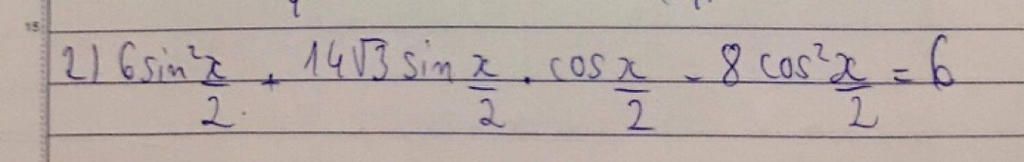 2) 6 sin² x/2 + 14√3 sin x/2 . cos x/2 - 8 cos² x/2 = 6